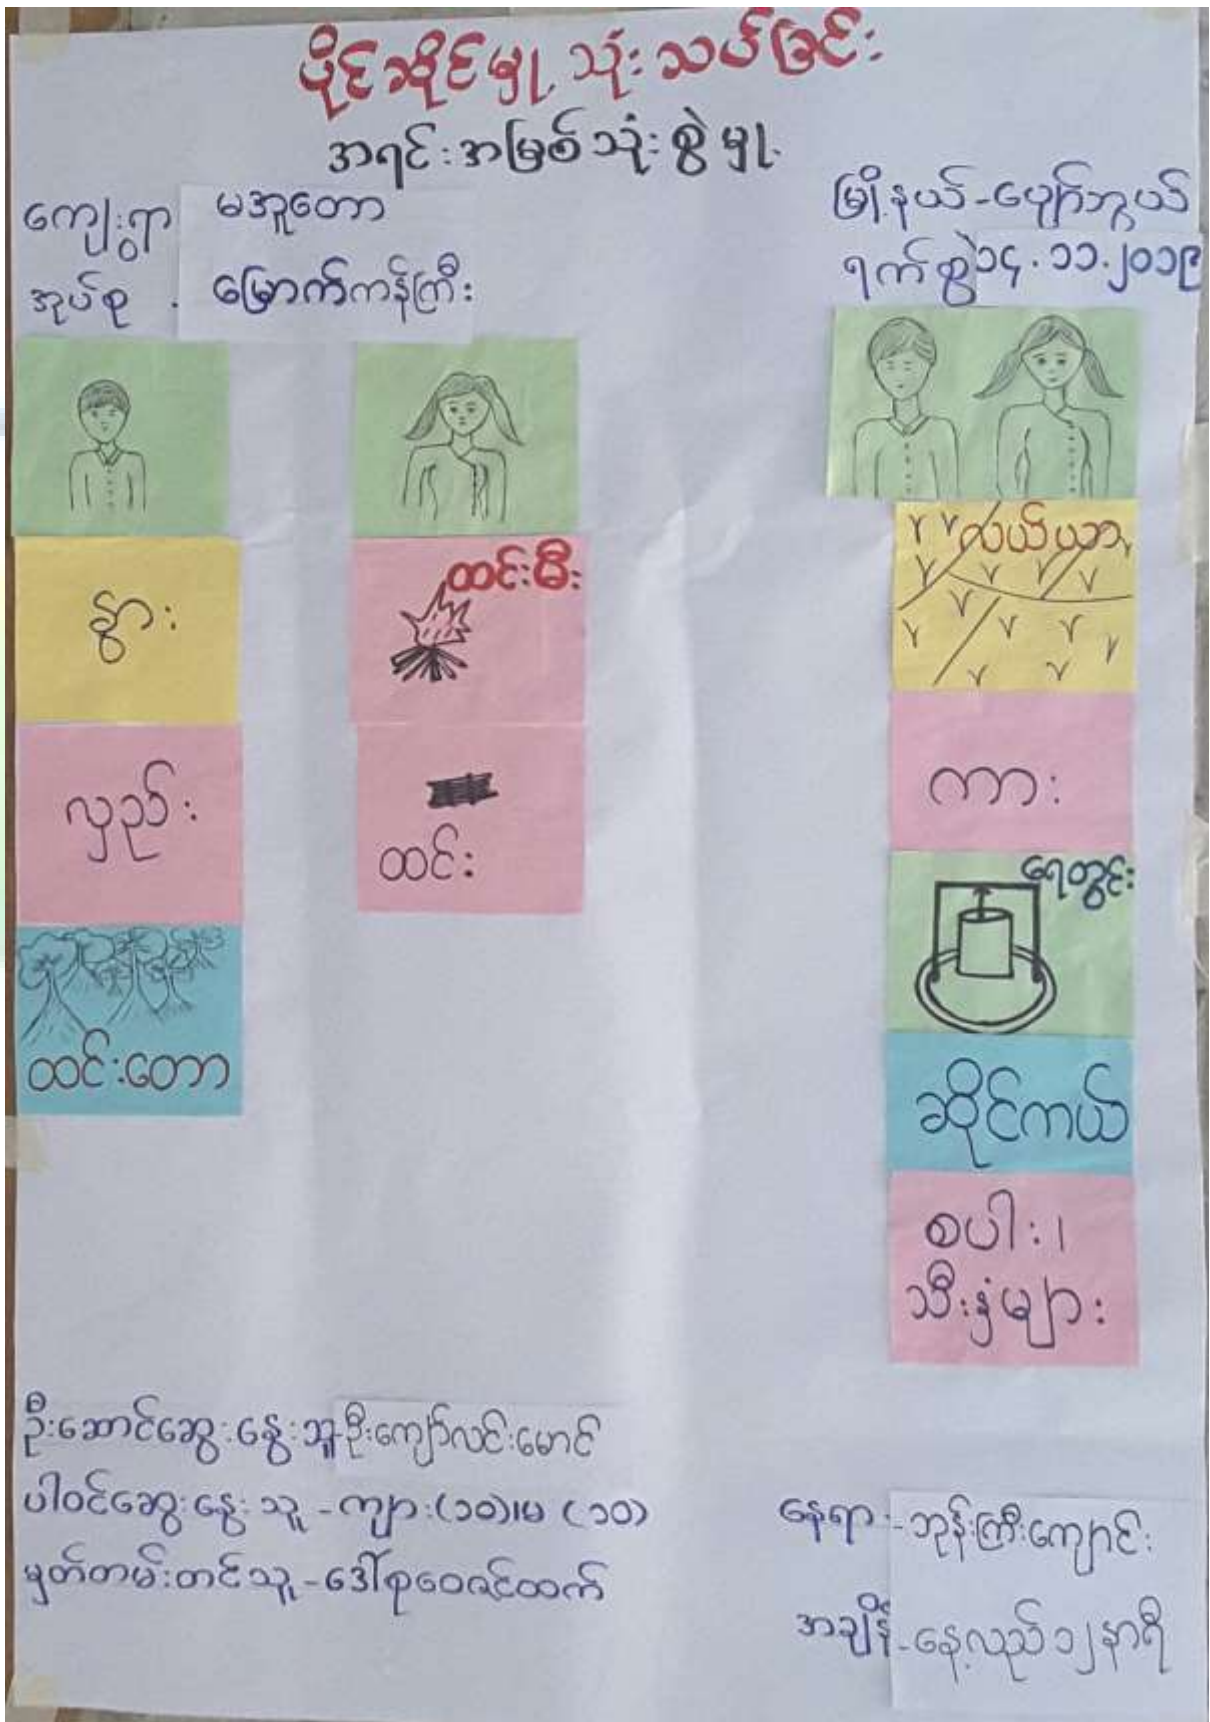 ပိုင်ဆိုင်မှု သုံးသပ်ခြင်း
အရင်းအမြစ်သုံးစွဲမှု
ကျေးရွာ မအူတော
အုပ်စု - မြောက်ကန်ကြီး
မြို့နယ်-ပျော်ဘွယ်
ရက်စွဲ ၁၄.၁၁.၂၀၁၉
နွား
လှည်း
ထင်းတော
ထင်းမီး
ထင်း
လယ်ယာ
ကား
ရေတွင်း
ဆိုင်ကယ်
စပါး၊
သီးနှံများ
ဦးဆောင်ဆွေးနွေးသူ-ဦးကျော်လင်းမောင်
ပါဝင်ဆွေးနွေးသူ-ကျား(၁၀)၊မ (၁၀)
မှတ်တမ်းတင်သူ-ဒေါ်စုဝေဇင်ထက်
နေရာ-ဘုန်းကြီးကျောင်း
အချိန်-နေ့လည်၁၂နာရီ